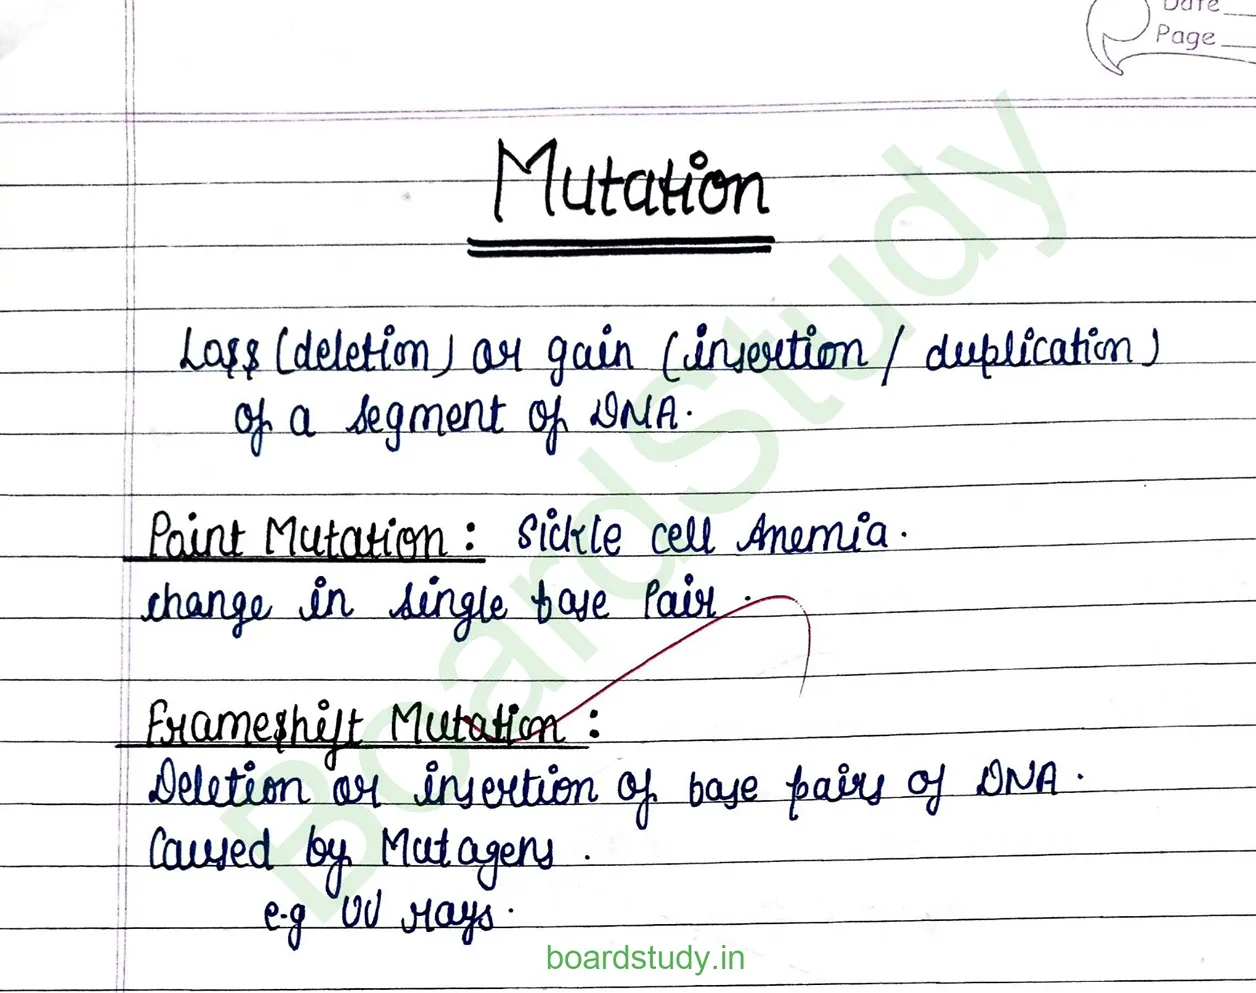 Date
Page
Mutation
Loss (deletion) or gain (insertion / duplication)
of a segment of DNA.
Point Mutation : Sickle cell Anemia.
change in single base Pair.
Frameshift Mutation :
Deletion or insertion of base pairs of DNA.
Caused by Mutagens.
e.g UV rays.
BoardStudy
boardstudy.in